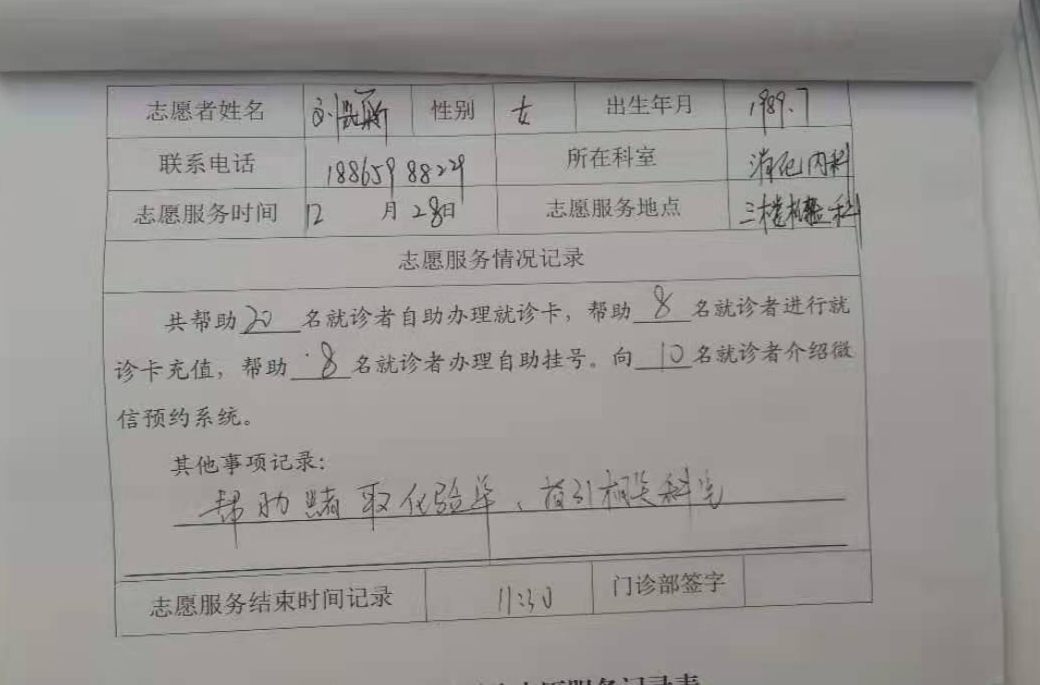 志愿者姓名 刘 性别 女 出生年月 1989.7
联系电话 18865988229 所在科室 消化内科
志愿服务时间 12月28日 志愿服务地点 三楼检验科
志愿服务情况记录
共帮助20名就诊者自助办理就诊卡，帮助8名就诊者进行就
诊卡充值，帮助8名就诊者办理自助挂号。向10名就诊者介绍微
信预约系统。
其他事项记录：
帮助患者取化验单、指引相关科室
志愿服务结束时间记录 11:30 门诊部签字
志愿服务记录表